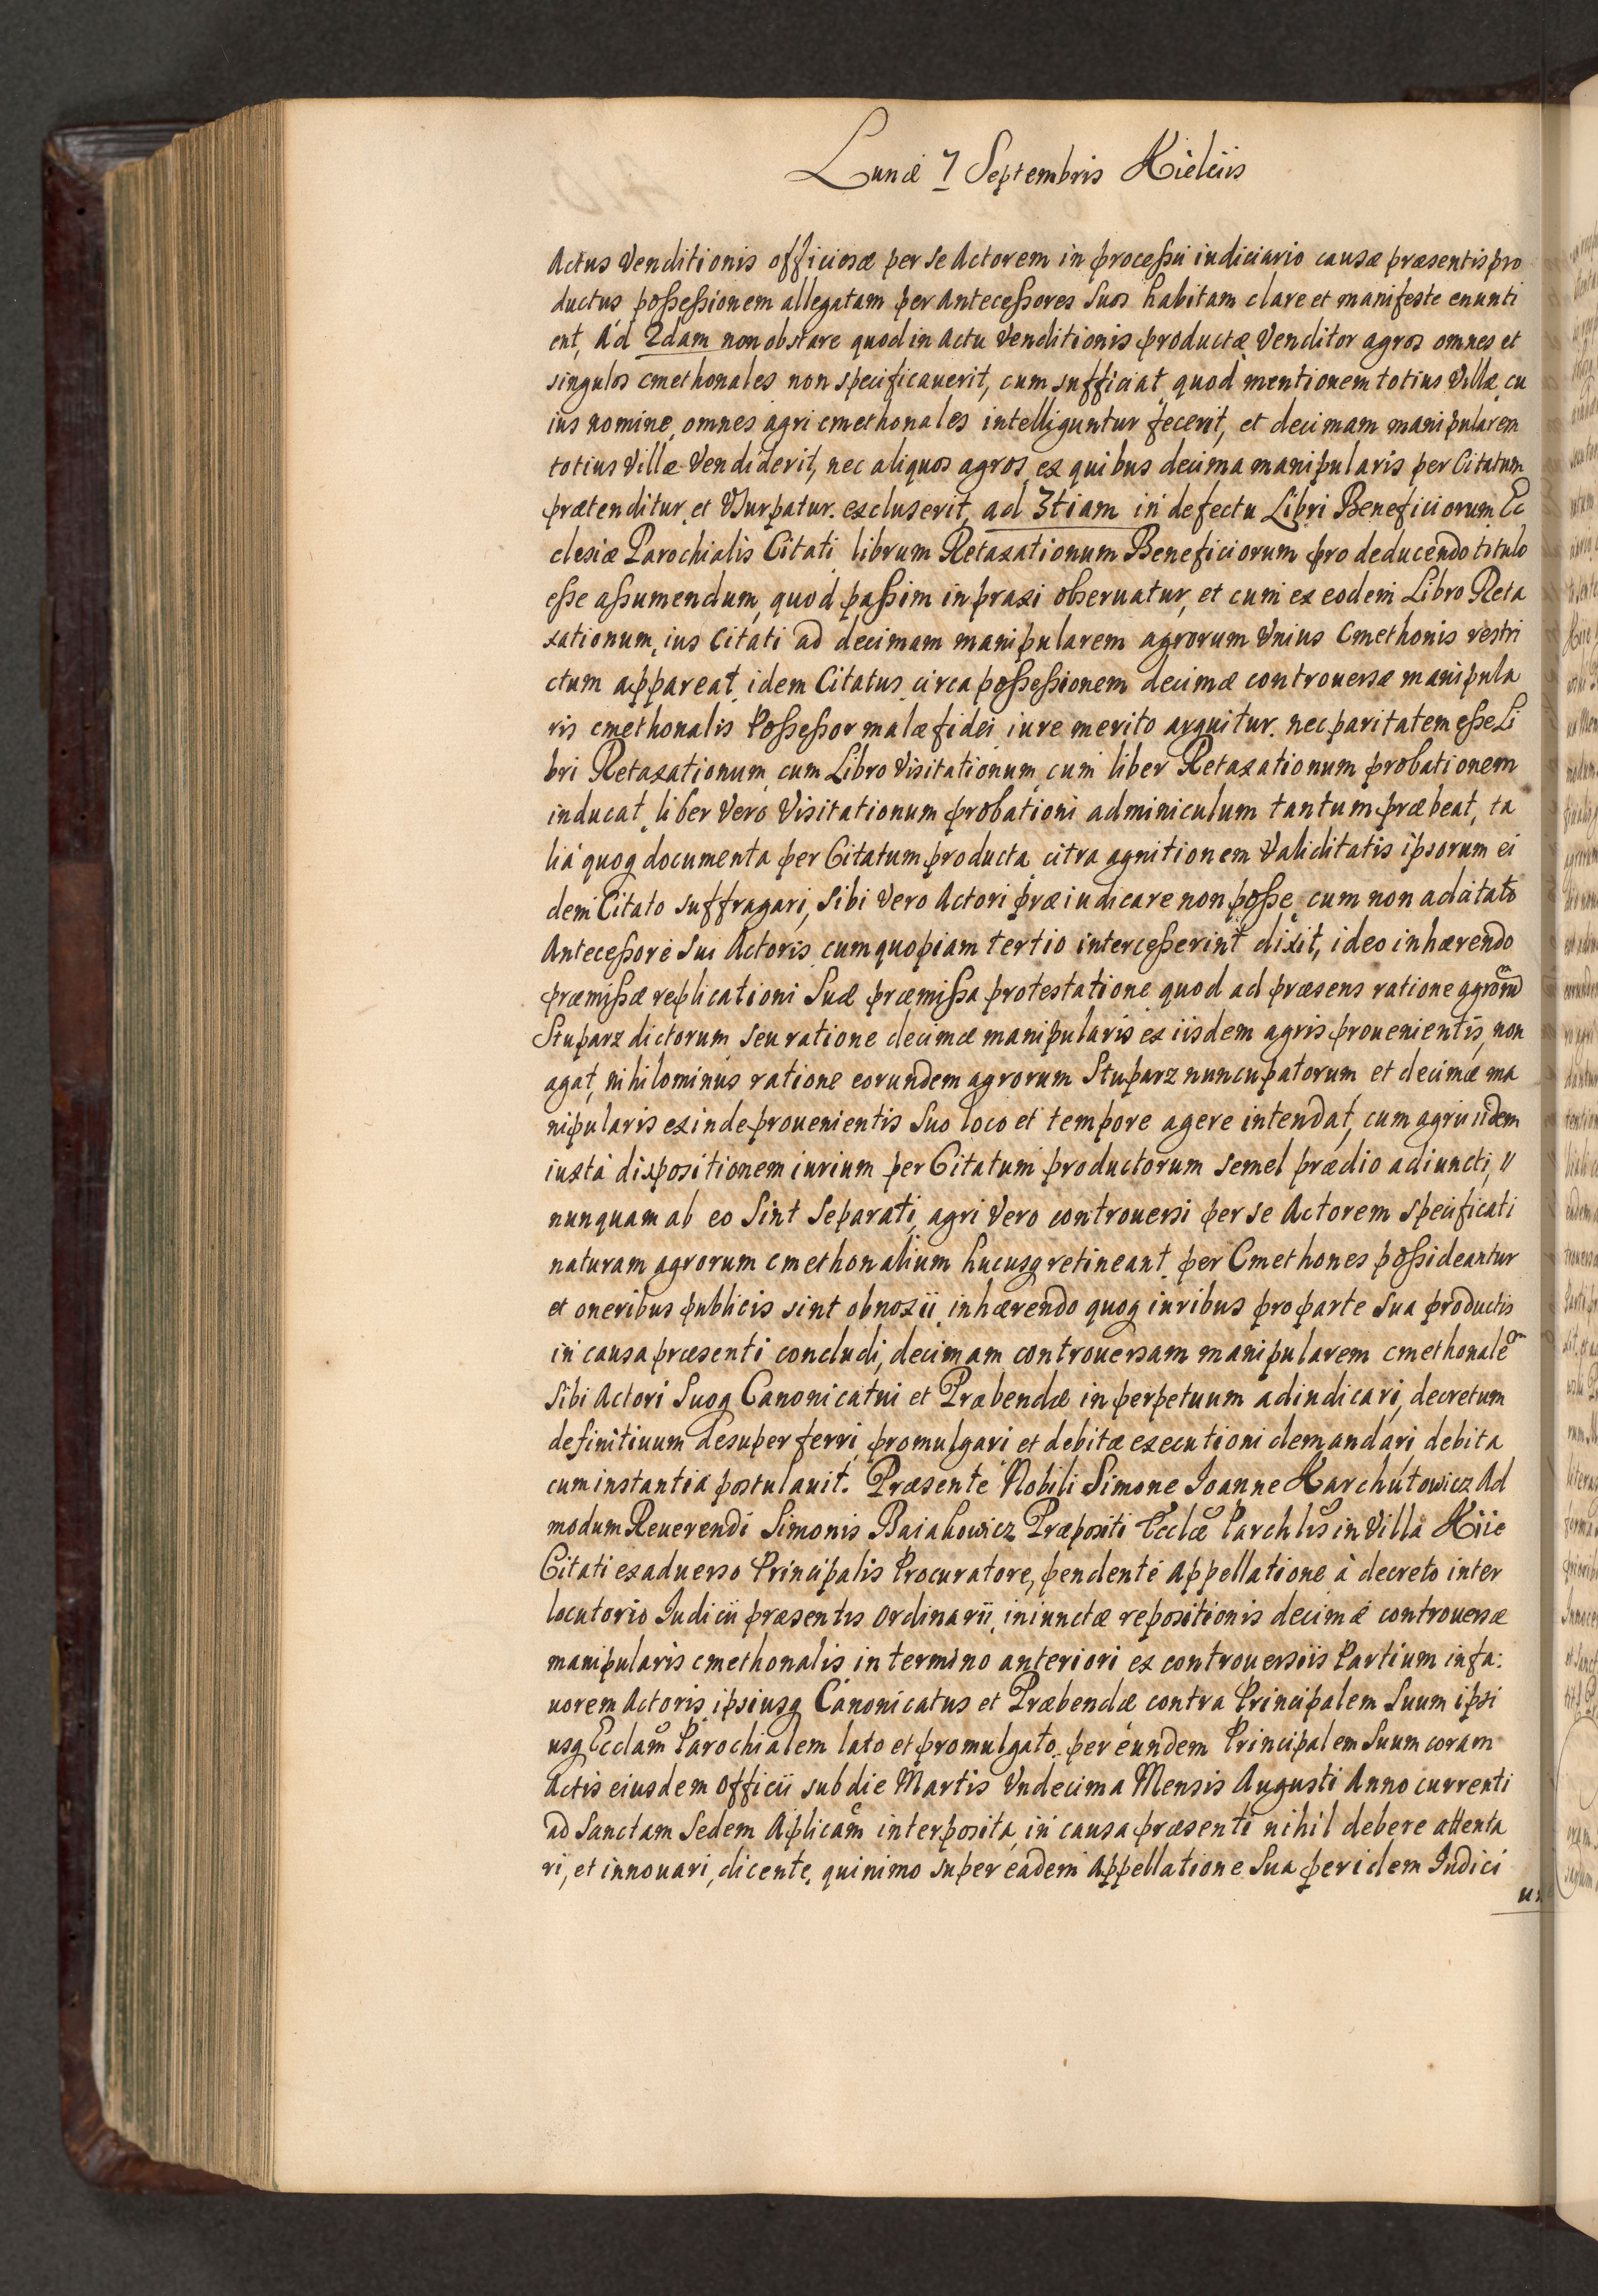 Lunæ 7 Septembris Kielciis
Actus Venditionis officiosæ per se Actorem in processu iudiciario causæ præsentis pro
ductus, possessionem allegatam per Antecessores Suos habitam clare et manifeste enunti
ent, Ad 2dam non obstare quod in Actu Venditionis productæ Venditor agros omnes et
singulos cmethonales non specificauerit, cum sufficiat quod mentionem totius Villæ, cu
ius nomine, omnes agri cmethonales intelliguntur fecerit, et decimam manipularem
totius Villæ Vendiderit, nec aliquos agros, ex quibus decima manipularis per Citatum
prætenditur et Vsurpatur excluserit, ad 3tiam in defectu Libri Beneficiorum Ec
clesiæ Parochialis Citati librum Retaxationum Beneficiorum pro deducendo titulo
esse assumendum, quod passim in praxi obseruatur, et cum ex eodem Libro Reta
xationum, ius Citati ad decimam manipularem agrorum Vnius Cmethonis restri
ctum appareat idem Citatus circa possessionem decimæ controuersæ manipula
ris cmethonalis Possessor malæ fidei iure merito arguitur. nec paritatem esse Li
bri Retaxationum, cum Libro Visitationum, cum liber Retaxationum probationem
inducat, liber Vero Visitationum probationi adminiculum tantum præbeat, ta
lia quoq documenta per Citatum producta, citra agnitionem Validitatis ipsorum ei
dem Citato suffragari, Sibi Vero Actori præiudicare non posse, cum non a citato
Antecessore Sui Actoris cum quopiam tertio intercesserint dixit, ideo inhærendo
præmissæ replicationi Suæ præmissa protestatione quod ad præsens ratione agrorum
Stuparz dictorum seu ratione decimæ manipularis ex iisdem agris prouenientis, non
agat, nihilominus ratione eorundem agrorum Stuparz nuncupatorum et decimæ ma
nipularis exinde prouenientis Suo loco et tempore agere intendat, cum agri iidem
iuxta dispositionem iurium per Citatum productorum semel prædio adiuncti, //
nunquam ab eo Sint Separati, agri Vero controuersi per se Actorem specificati
naturam agrorum cmethonalium hucusq retineant, per Cmethones possideantur
et oneribus publicis sint obnoxii, inhærendo quoq iuribus pro parte Sua productis
in causa præsenti concludi, decimam controuersam manipularem cmethonalem
Sibi Actori Suoq Canonicatui et Præbendæ in perpetuum adiudicari, decretum
definitiuum desuper ferri, promulgari et debitæ executioni demandari debita
cum instantia postulauit. Præsente Nobili Simone Ioanne Karchutowicz Ad
modum Reuerendi Simonis Baiakowicz Præpositi Ecclæ Parchlis in Villa Kiie
Citati exaduerso Principalis Procuratore, pendente Appellatione à decreto inter
locutorio Iudicii præsentis Ordinarii, iniunctæ repositionis decimæ controuersæ
manipularis cmethonalis in termino anteriori ex controuersiis Partium in fa:
uorem Actoris, ipsiusq Canonicatus et Præbendæ contra Principalem Suum ipsi
usq Ecclam Parochialem lato et promulgato per eundem Principalem Suum coram
Actis eiusdem Officii sub die Martis Vndecima Mensis Augusti Anno currenti
ad Sanctam Sedem Aplicam interposita, in causa præsenti nihil debere attenta
ri, et innouari, dicente, quinimo super eadem Appellatione Sua per idem Iudici